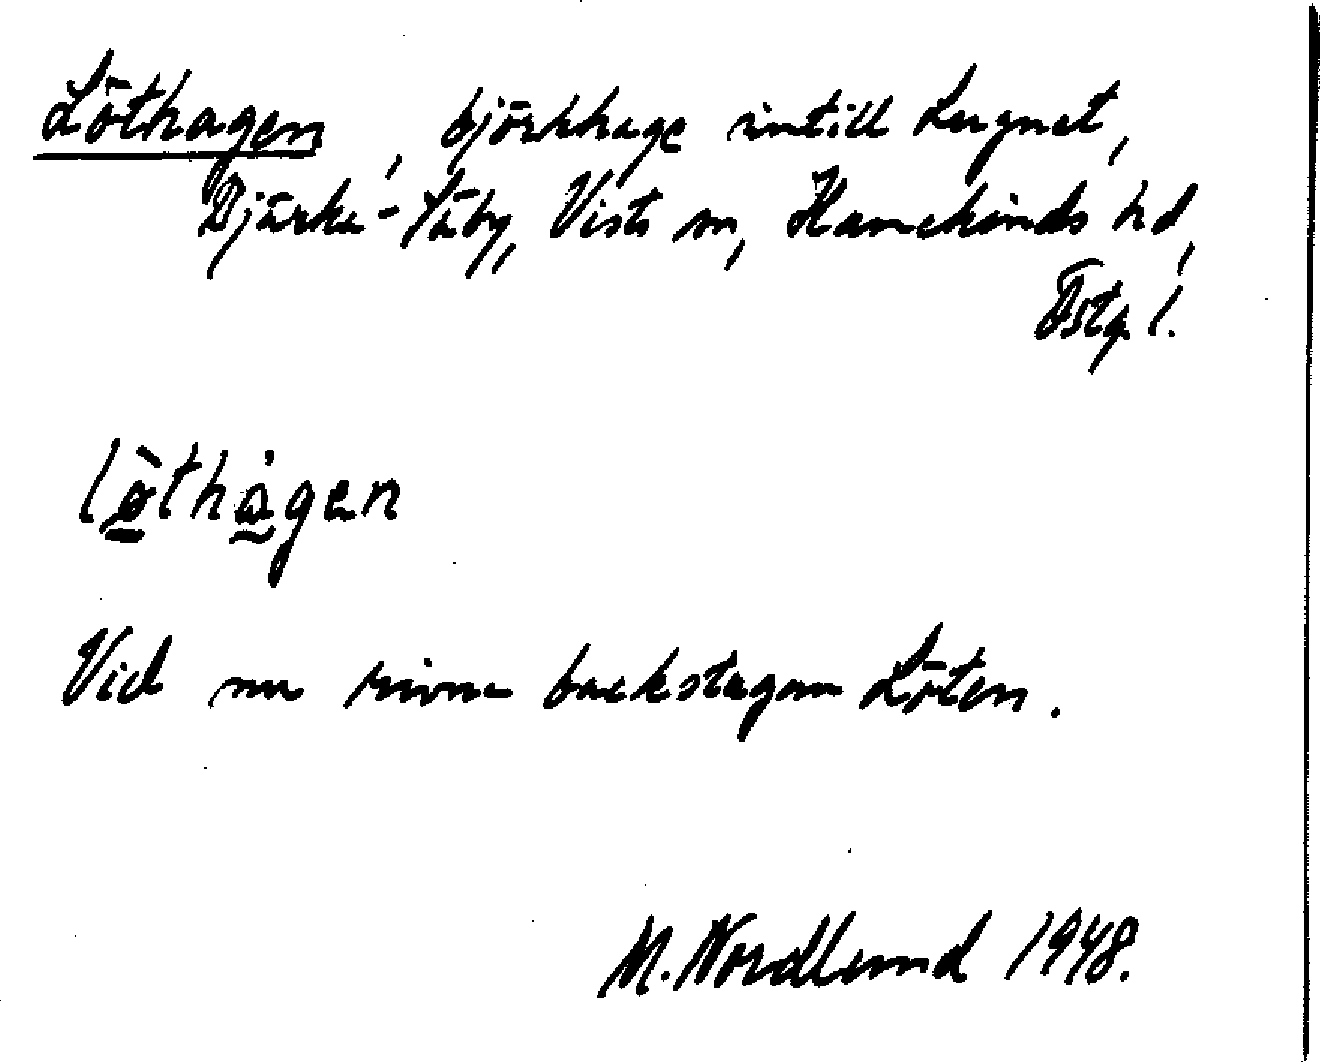 Löthagen, björkhage intill Lugnet,
Djärke-Täby, Vists sn, Hanekinds hd,
Östg l.
lö̀thágen
Vid nu rivna backstugan Löten.
M. Nordlund 1948.